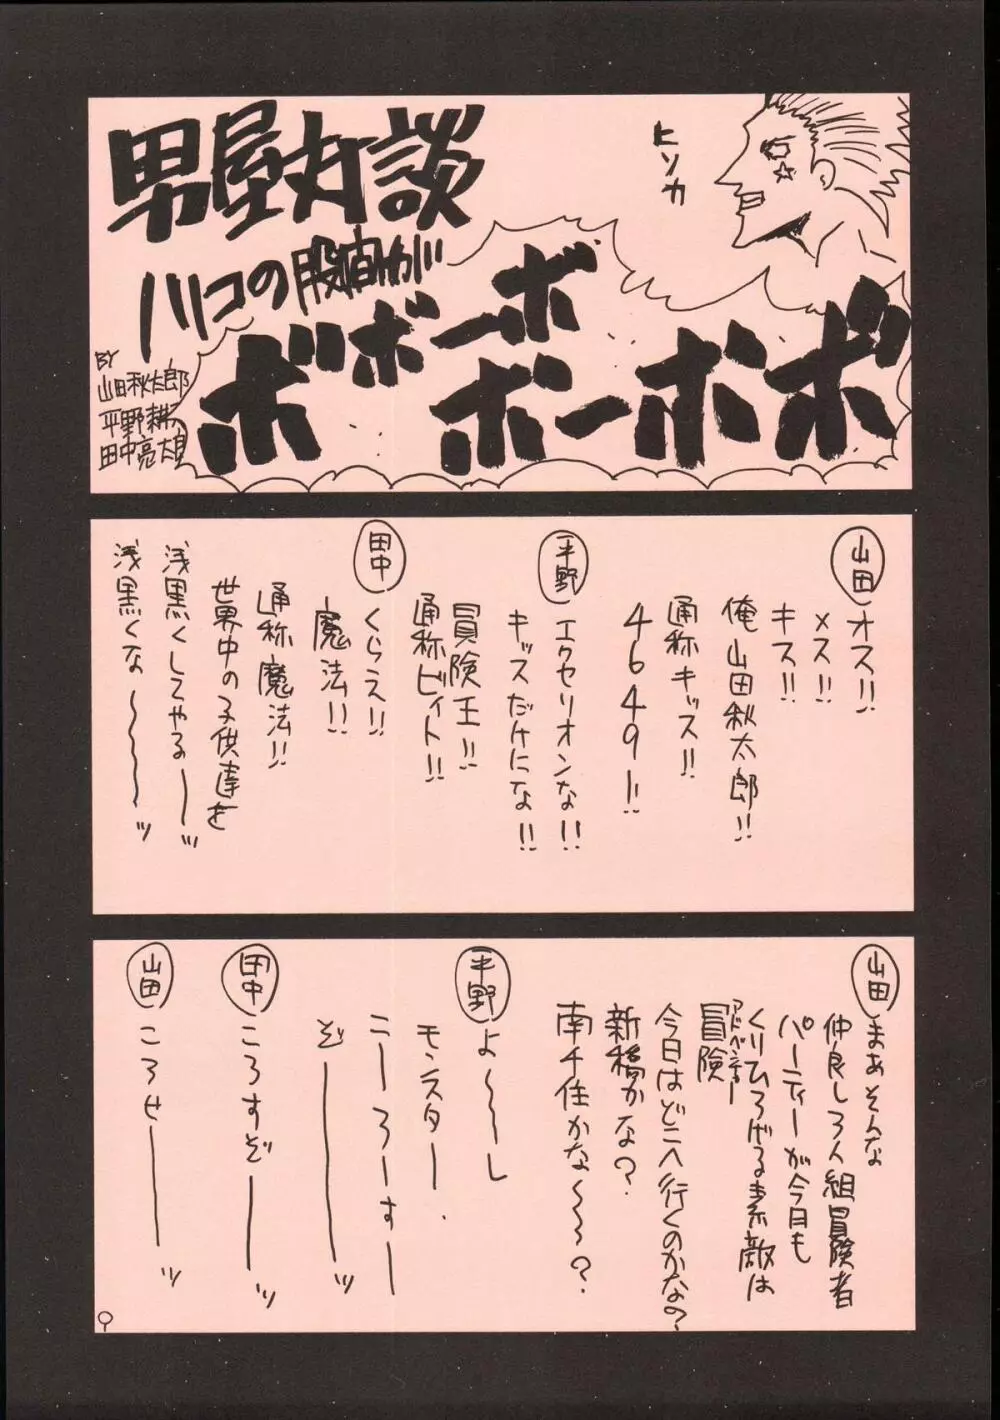 男屋対談
ハリコの股間が
ボボボーボ
ボーボボ
ヒソカ
BY
山田秋太郎
平野耕太
田中亮太郎
山田
オス!!
メス!!
キス!!
俺山田秋太郎!!
通称キッス!!
4649!!
平野
エクセリオンな!!
キッスだけにな!!
冒険王!!
通称ビィト!!
田中
くらえ!!
魔法!!
通称魔法!!
世界中の子供達を
浅黒くしてやるーッ
浅黒くな〜〜〜ッ
山田
まあそんな
仲良し3人組冒険者
パーティーが今日も
くりひろげる素敵は
冒険
アドベンチャー
今日はどこへ行くのかな?
新稿かな?
南千住かな〜〜?
平野
よ〜〜し
モンスター
こーろーすー
ぞーーッ
田中
ころすぞーーッ
山田
ころせーーッ